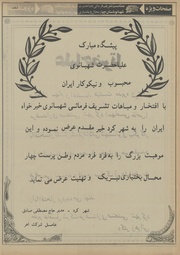 صفحات ویژه
پیشگاه مبارک
علیاحضرت شهبانوی
محبوب و نیکوکار ایران
با افتخار و مباهات تشریف فرمائی شهبانوی خیر خواه
ایران را به شهر کرد خیر مقدم عرض نموده و این
موهبت بزرگ را به فرد فرد مردم وطن پرست چهار
محال بختیاری تبریک و تهنیت عرض می نماید
شهر کرد - حاج مصطفی صادقی